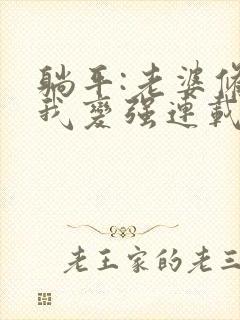 躺平:老婆
我变强連載
老王家的老三